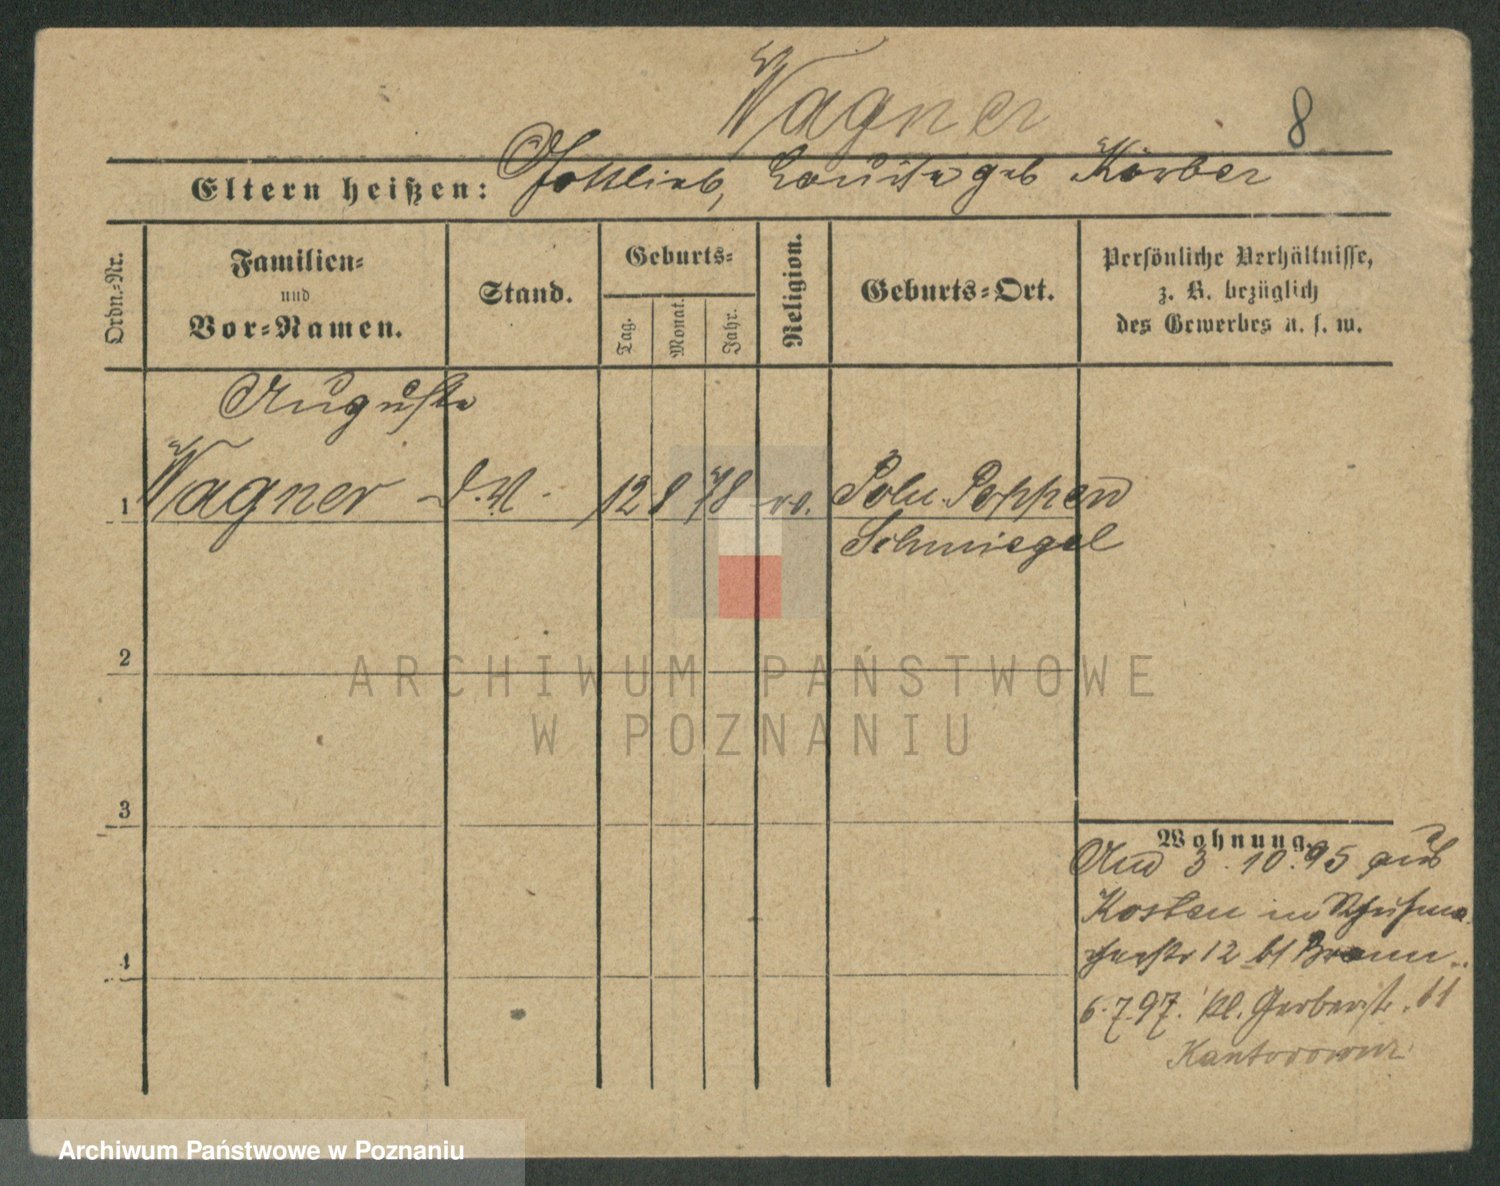 Wagner
8
Eltern heißen: Gottlieb, Louise geb Körber
Ordn.-Nr.
Familien-
und
Vor-Namen.
Stand.
Geburts-
Tag.
Monat.
Jahr.
Religion.
Geburts-Ort.
Persönliche Verhältnisse,
z. B. bezüglich
des Gewerbes u. s. w.
Auguste
1 Wagner 12 8 78 ev. Poln. Poppen
Schmiegel
2
3
4
Wohnung.
3.10.95 aus
Kosten in Schuhma-
cherstr 12 bt Braun
6.7.97. Kl. Gerberstr. 11
Kantorowicz
ARCHIWUM PAŃSTWOWE
W POZNANIU
Archiwum Państwowe w Poznaniu